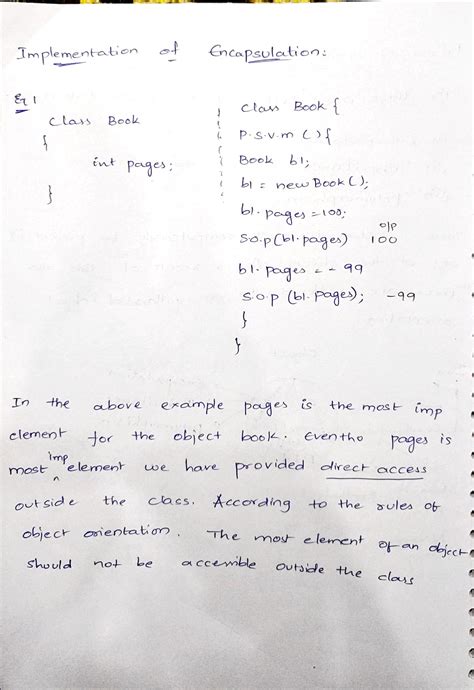 Implementation of Encapsulation:
Eg 1
Class Book
{
int pages;
}
Class Book {
P.S.V.m () {
Book b1;
b1 = new Book ();
b1.pages = 100;
S.o.p (b1.pages) o/p 100
b1.pages = -99
S.o.p (b1.pages); -99
}
}
In the above example pages is the most imp
element for the object book. Eventho pages is
most imp element we have provided direct access
outside the class. According to the rules of
object orientation. The most element of an object
should not be accemible outside the class